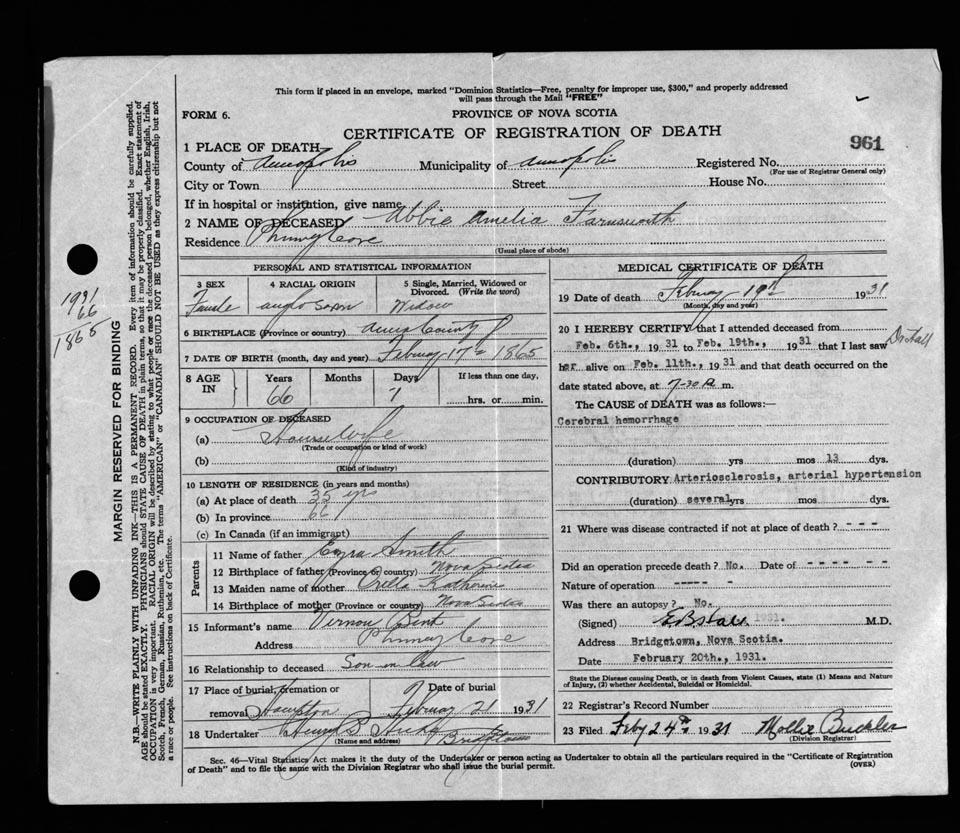 This form if placed in an envelope, marked "Dominion Statistics—Free, penalty for improper use, $300," and properly addressed
will pass through the Mail "FREE"
FORM 6.
PROVINCE OF NOVA SCOTIA
CERTIFICATE OF REGISTRATION OF DEATH
961
1 PLACE OF DEATH
County of Annapolis Municipality of Annapolis Registered No.
(For use of Registrar General only)
City or Town Street House No.
If in hospital or institution, give name
2 NAME OF DECEASED Abbie Amelia Farnsworth
Residence Phinney Cove
(Usual place of abode)
PERSONAL AND STATISTICAL INFORMATION
3 SEX 4 RACIAL ORIGIN 5 Single, Married, Widowed or
Divorced. (Write the word)
Female Anglo Saxon Widow
6 BIRTHPLACE (Province or country) Anna County
7 DATE OF BIRTH (month, day and year) February 17th 1865
8 AGE IN Years Months Days If less than one day,
66 hrs. or min.
9 OCCUPATION OF DECEASED
(a) Housewife
(Trade or occupation or kind of work)
(b)
(Kind of industry)
10 LENGTH OF RESIDENCE (in years and months)
(a) At place of death 35 yrs
(b) In province 66
(c) In Canada (if an immigrant)
Parents
11 Name of father Ezra Smith
12 Birthplace of father (Province or country) Nova Scotia
13 Maiden name of mother Katherine
14 Birthplace of mother (Province or country) Nova Scotia
15 Informant's name Vernon Bent
Address Phinney Cove
16 Relationship to deceased Son in law
17 Place of burial, cremation or Date of burial
removal Hampton February 21 1931
18 Undertaker Henry Hicks Bridgetown
(Name and address)
MEDICAL CERTIFICATE OF DEATH
19 Date of death February 19th 1931
(Month, day and year)
20 I HEREBY CERTIFY that I attended deceased from
Feb. 6th., 1931 to Feb. 19th., 1931 that I last saw
Dr Hall
her alive on Feb. 11th., 1931 and that death occurred on the
date stated above, at 7-30 P. m.
The CAUSE of DEATH was as follows:—
Cerebral hemorrhage
(duration) yrs mos 13 dys.
CONTRIBUTORY Arteriosclerosis, arterial hypertension
(duration) several yrs mos dys.
21 Where was disease contracted if not at place of death? - - -
Did an operation precede death? No. Date of - - - - -
Nature of operation ----- -
Was there an autopsy? No.
(Signed) M.D.
Address Bridgetown, Nova Scotia.
Date February 20th., 1931.
State the Disease causing Death, or in death from Violent Causes, state (1) Means and Nature
of Injury, (2) whether Accidental, Suicidal or Homicidal.
22 Registrar's Record Number
23 Filed Feby 24th 1931 Mollie Buckler
(Division Registrar)
Sec. 46—Vital Statistics Act makes it the duty of the Undertaker or person acting as Undertaker to obtain all the particulars required in the "Certificate of Registration
of Death" and to file the same with the Division Registrar who shall issue the burial permit.
(OVER)
1931
66
1865
MARGIN RESERVED FOR BINDING
N.B.—WRITE PLAINLY WITH UNFADING INK—THIS IS A PERMANENT RECORD. Every item of information should be carefully supplied.
AGE should be stated EXACTLY. PHYSICIANS should STATE CAUSE OF DEATH in plain terms, so that it may be properly classified. Exact statement of
OCCUPATION is very important. RACIAL ORIGIN will be described by stating to what people or race the deceased person belonged, whether English, Irish,
Scotch, French, German, Russian, Ruthenian, etc. The terms "AMERICAN" or "CANADIAN" SHOULD NOT BE USED as they express citizenship but not
a race or people. See instructions on back of Certificate.